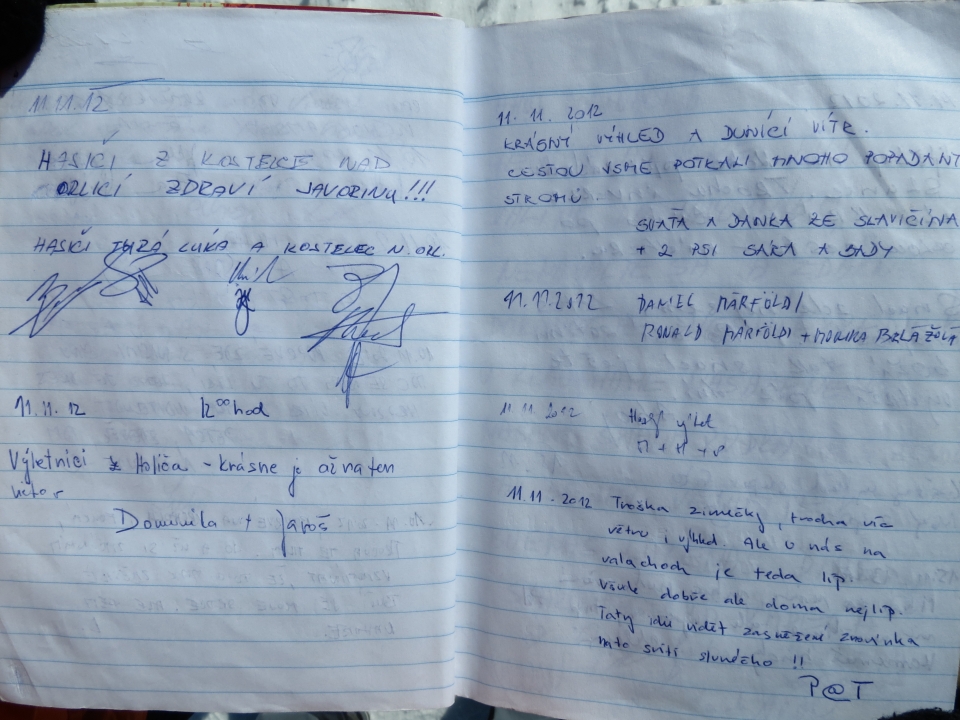 11.11.12
HASIČI Z KOSTELCE NAD
ORLICÍ ZDRAVÍ JAVORINU!!!
HASIČI LUKA A KOSTELEC N. ORL.
11.11.12 12⁰⁰ hod
Výletníci z Holíča - krásne je až na ten
vietor
Domimila + Jaroš
11. 11. 2012
KRÁSNÝ VÝHLED A DUNÍCÍ VÍTR.
CESTOU JSME POTKALI MNOHO POPADANÝ
STROMŮ.
SVAŤA A DANKA ZE SLAVIČÍNA
+ 2 PSI SÁRA A SADY
11.11.2012 DANIEL MÄRFÖLDI
RONALD MÄRFÖLDI + MONIKA
11 11 2012
M + M + P
11.11.2012 Troška zimečky, trocha víc
větru i výhled. Ale u nás na
valachoch je teda líp.
Všude dobře ale doma nejlíp.
Taky idu vidět zasněžení
mto svítí slunécko !!
P@T